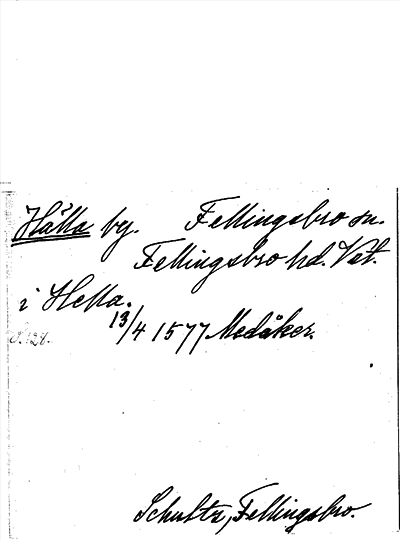 Hälla by. Fellingsbro sn.
Fellingsbro hd. Vstm.
i Hella.
13/4 1577 Medåker.
S. 128.
Schultz, Fellingsbro.